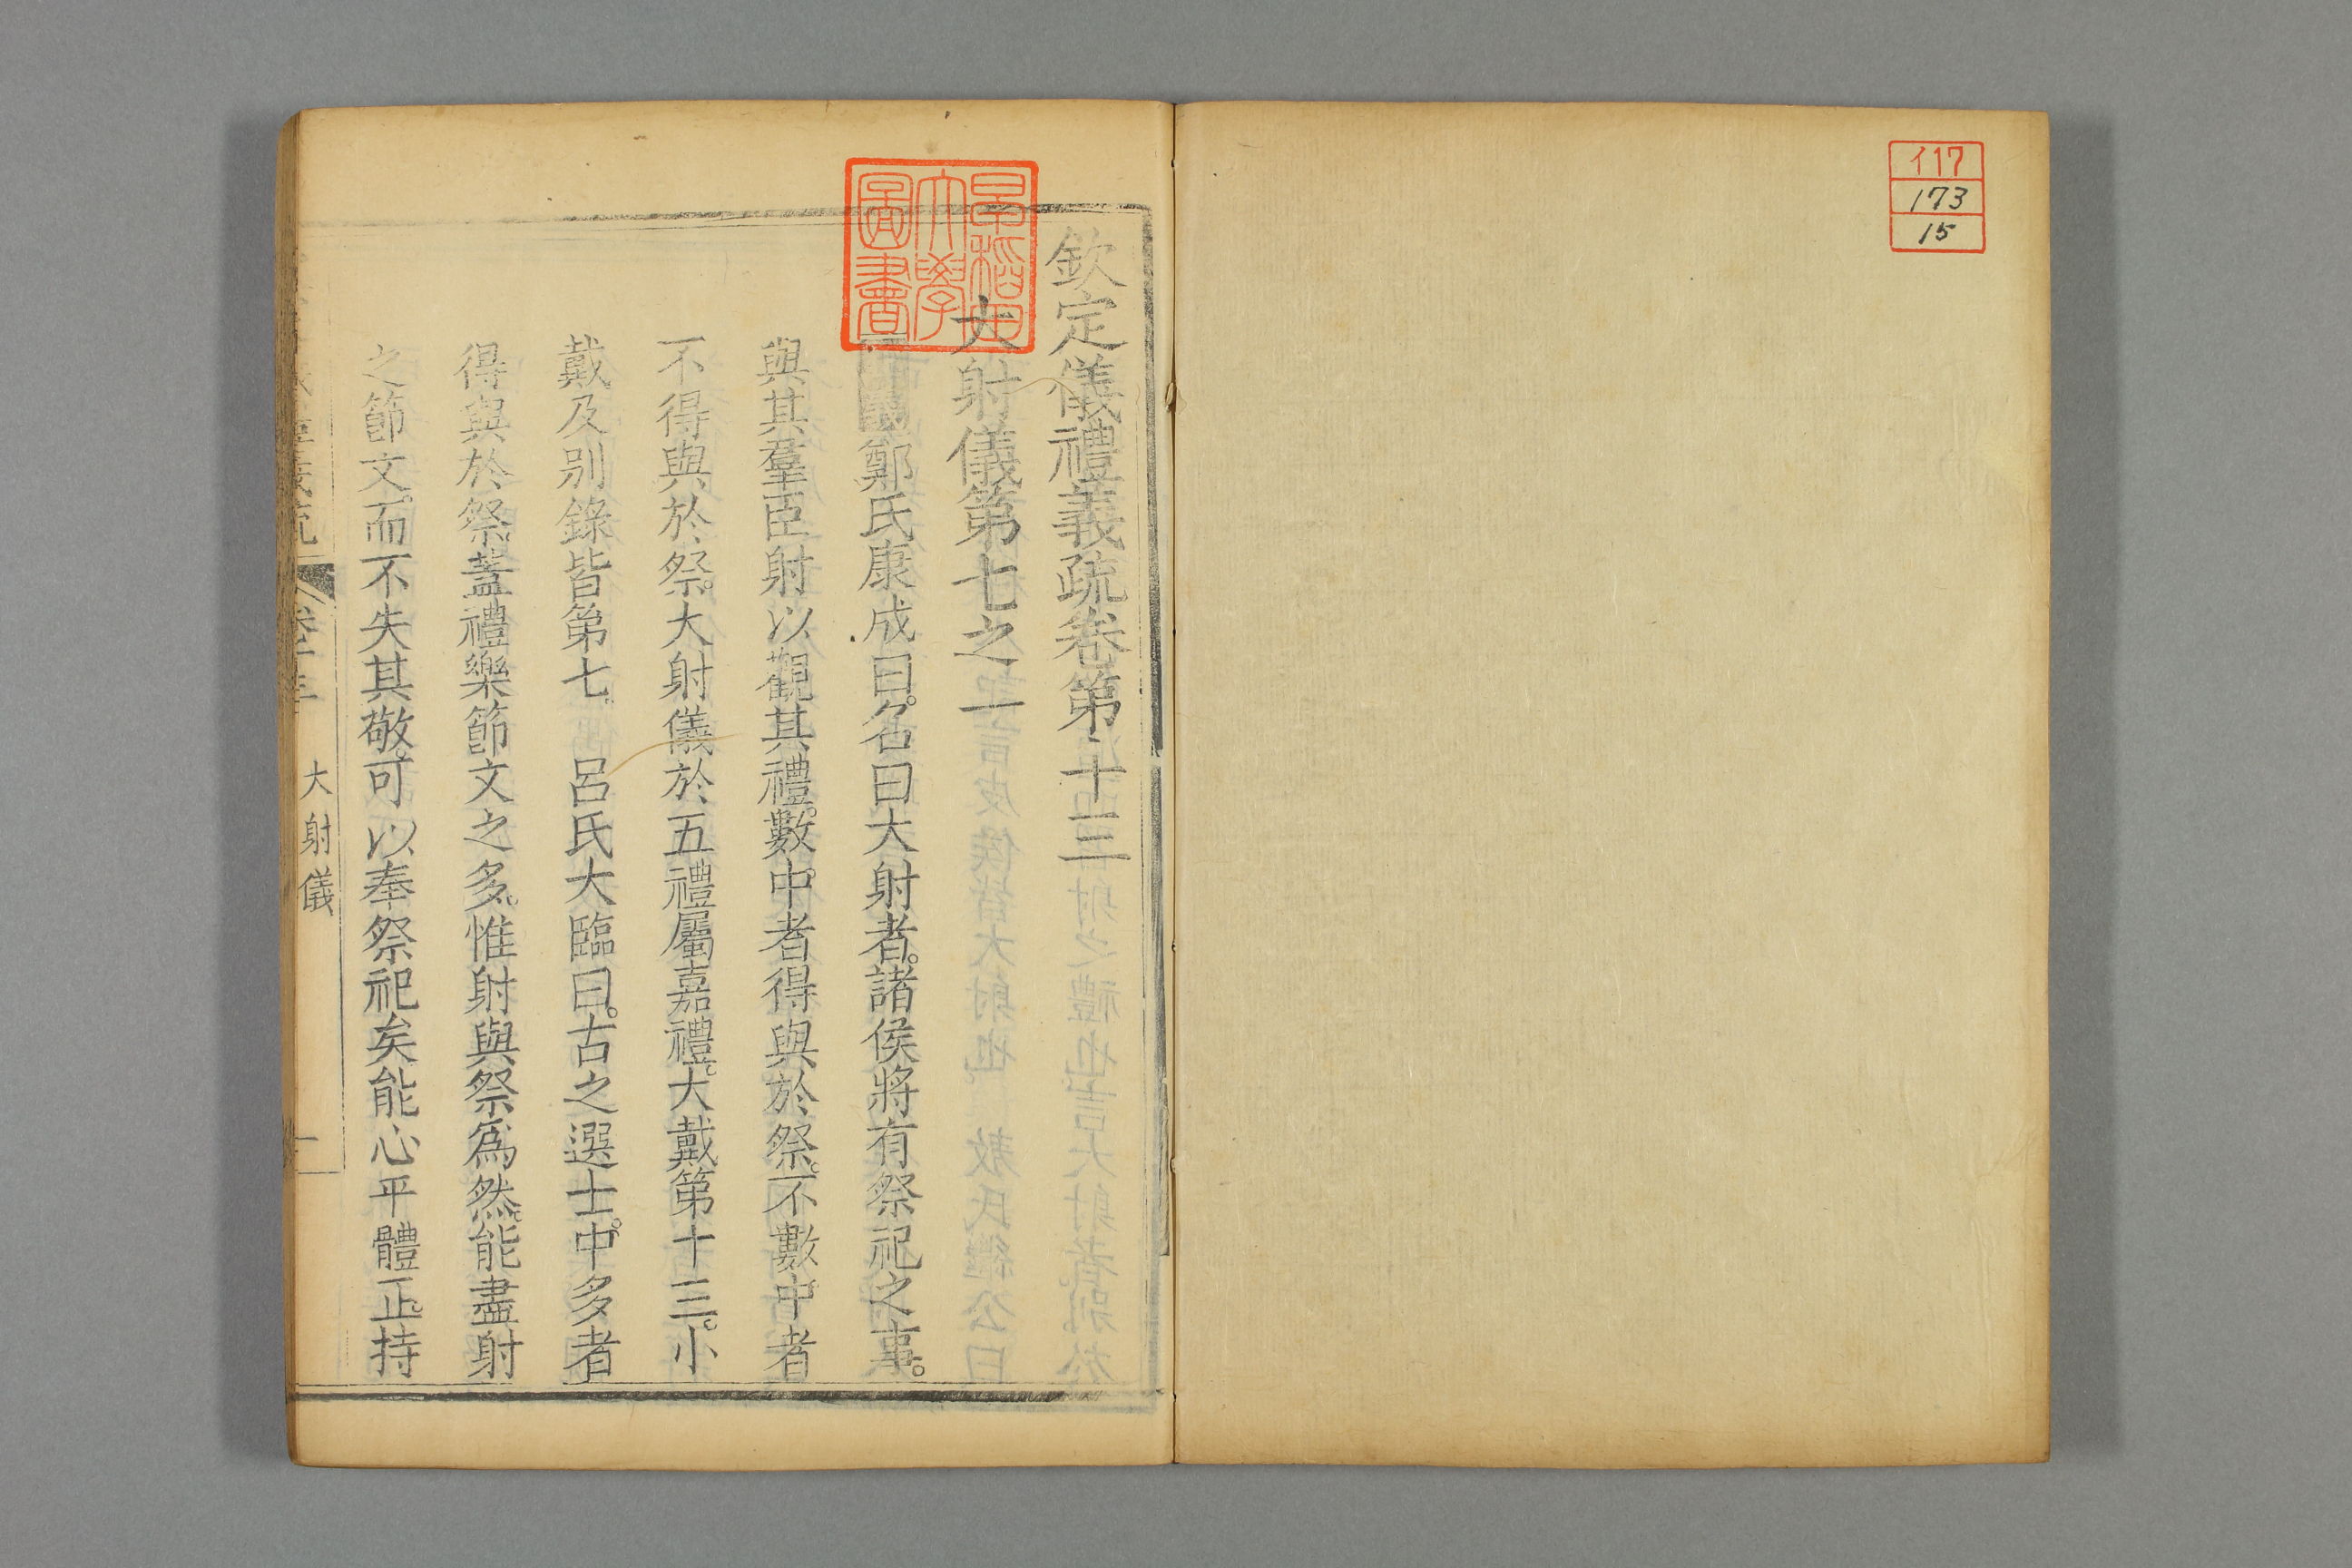 イ17
173
15
欽定儀禮義疏卷第十三
大射儀第七之一
鄭氏康成曰。名曰大射者。諸侯將有祭祀之事。
與其羣臣射以觀其禮。數中者得與於祭。不數中者
不得與於祭。大射儀於五禮屬嘉禮。大戴第十三。小
戴及別錄皆第七 呂氏大臨曰。古之選士。中多者
得與於祭。葢禮樂節文之多。惟射與祭爲然。能盡射
之節文。而不失其敬。可以奉祭祀矣能心平體正。持
卷十三 大射儀 一
早稻田
大學
圖書